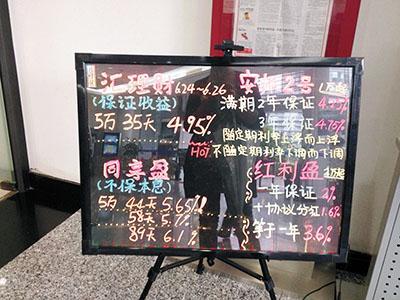 汇理财 6.24~6.26
(保证收益)
5万 35天 4.95%
HOT
同享盈
(不保本息)
5万 44天 5.65%
58天 5.7%
89天 6.1%
2号
满期2年保证
3年保证 4.75%
随定期利率上浮而上浮
不随定期利率下调而下调
红利盈
一年保证 2%
+协议分红1.6%
等于一年 3.6%